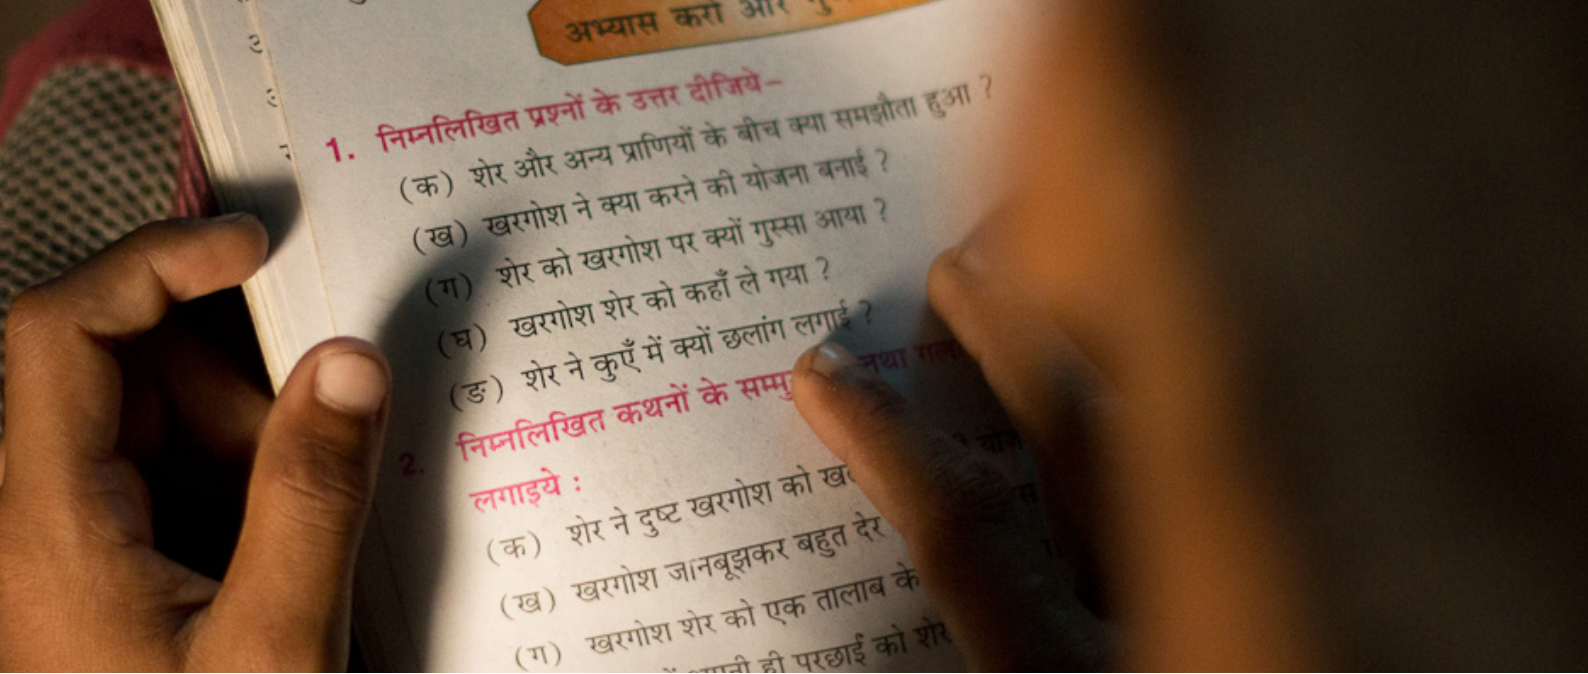 अभ्यास करो और
1. निम्नलिखित प्रश्नों के उत्तर दीजिये–
(क) शेर और अन्य प्राणियों के बीच क्या समझौता हुआ ?
(ख) खरगोश ने क्या करने की योजना बनाई ?
(ग) शेर को खरगोश पर क्यों गुस्सा आया ?
(घ) खरगोश शेर को कहाँ ले गया ?
(ङ) शेर ने कुएँ में क्यों छलांग लगाई ?
2. निम्नलिखित कथनों के तथा
लगाइये :
(क) शेर ने दुष्ट खरगोश को
(ख) खरगोश जानबूझकर बहुत देर
(ग) खरगोश शेर को एक तालाब के
ही परछाई को शेर